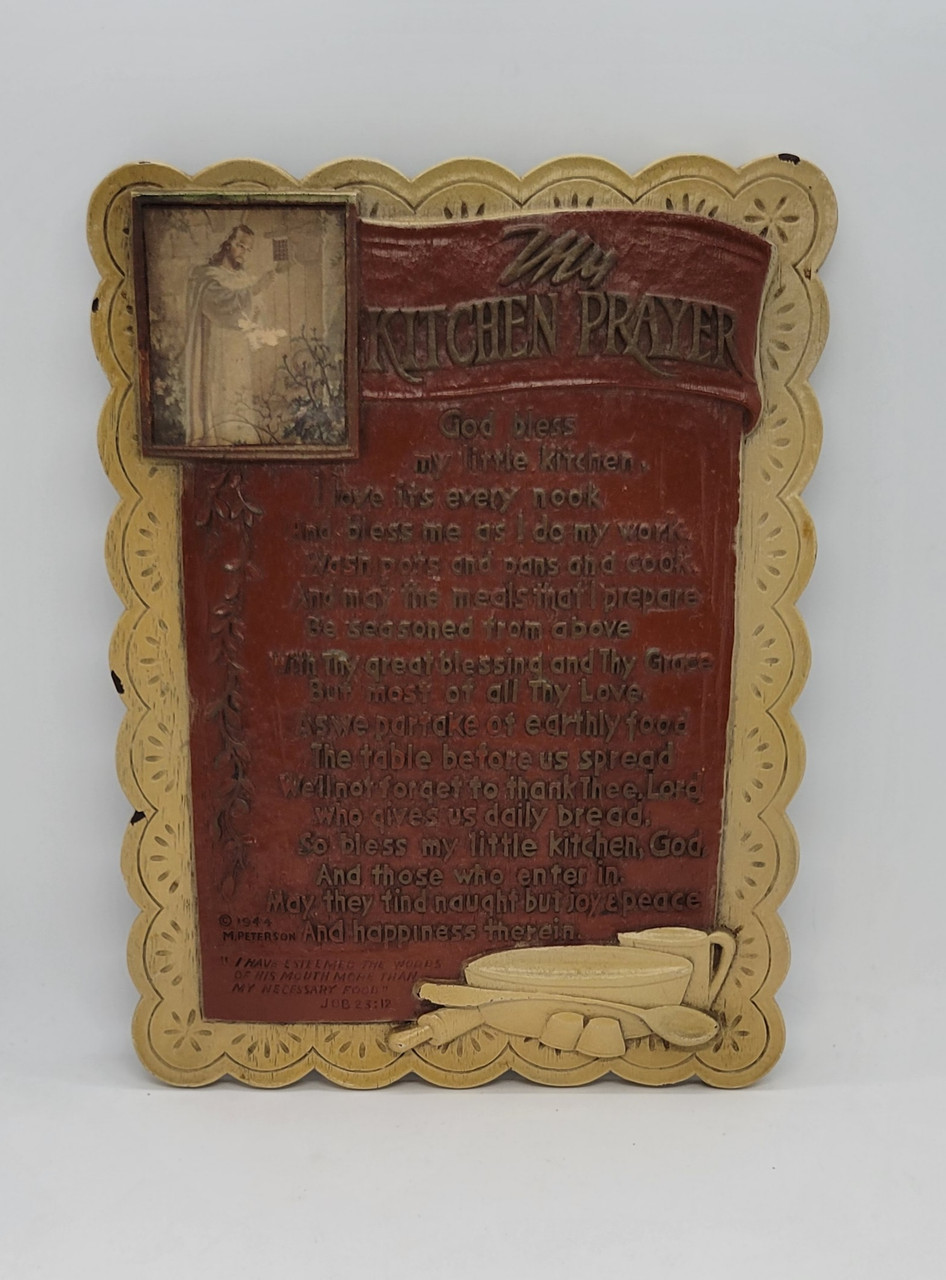 My
KITCHEN PRAYER
God bless
my little kitchen,
I love its every nook
And bless me as I do my work.
Wash pots and pans and cook.
And may the meals that I prepare
Be seasoned from above
With Thy great blessing and Thy Grace
But most of all Thy Love.
As we partake of earthly food
The table before us spread
We'll not forget to thank Thee, Lord,
Who gives us daily bread.
So bless my little kitchen, God
And those who enter in.
May they find naught but joy & peace
And happiness therein.
© 1944
M. PETERSON
"I HAVE ESTEEMED THE WORDS
OF HIS MOUTH MORE THAN
MY NECESSARY FOOD"
JOB 23:12